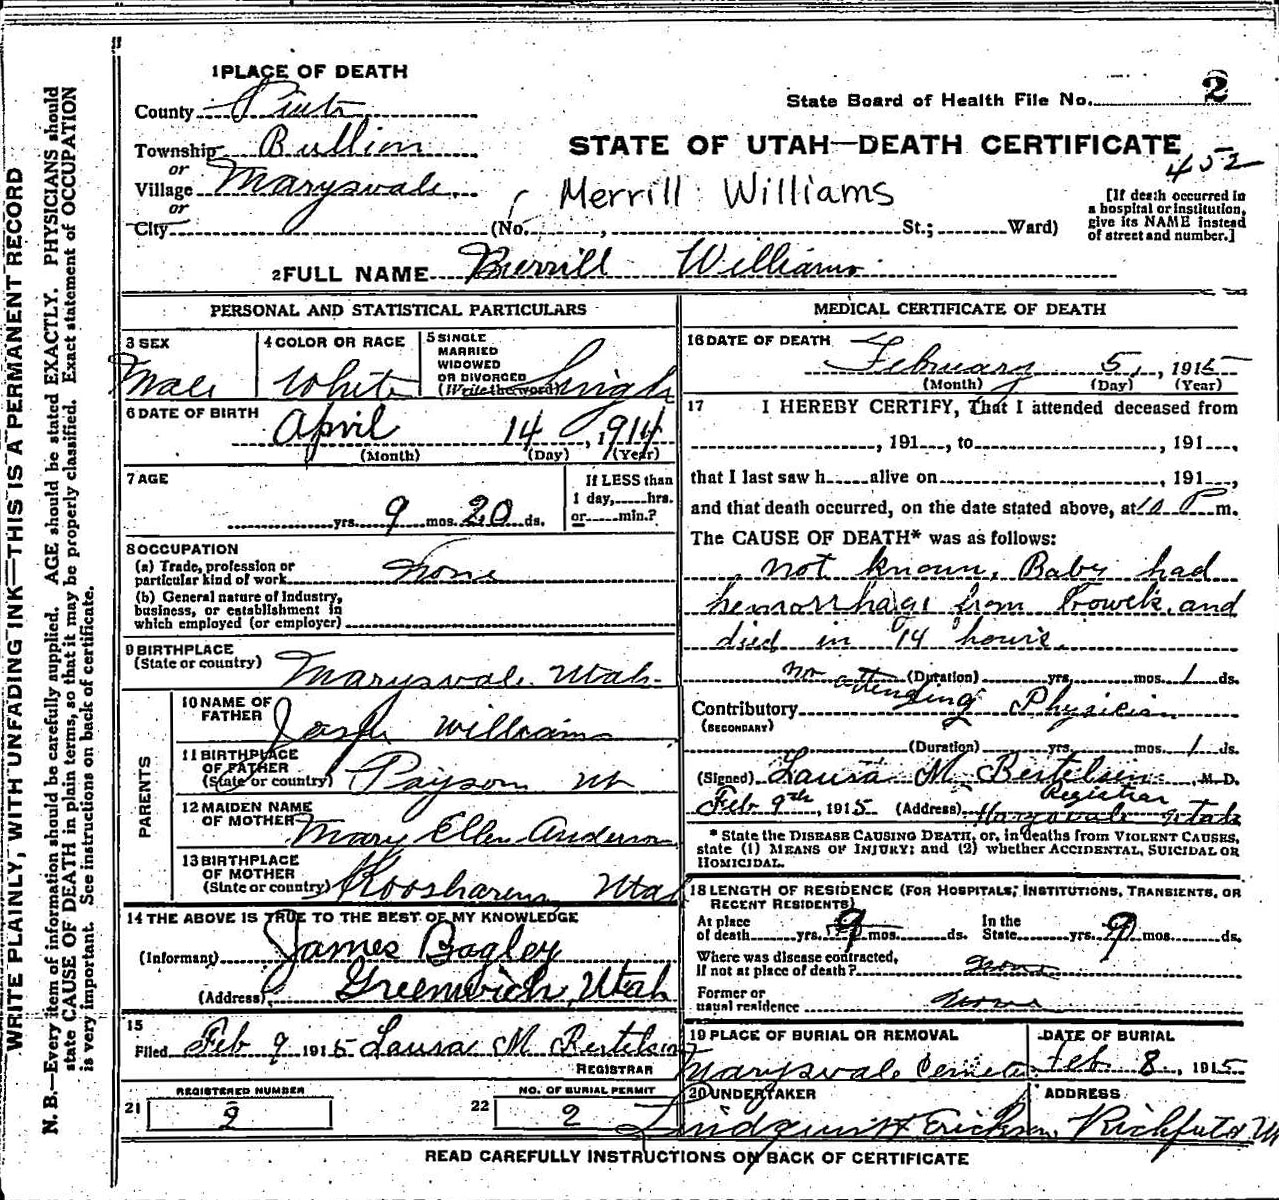 WRITE PLAINLY, WITH UNFADING INK—THIS IS A PERMANENT RECORD
N. B.—Every item of information should be carefully supplied. AGE should be stated EXACTLY. PHYSICIANS should
state CAUSE OF DEATH in plain terms, so that it may be properly classified. Exact statement of OCCUPATION
is very important. See instructions on back of certificate.
1 PLACE OF DEATH
County Piute
Township Bullion
or
Village Marysvale
or
City
State Board of Health File No. 2
STATE OF UTAH—DEATH CERTIFICATE
452
Merrill Williams
(No. , St.; Ward)
[If death occurred in
a hospital or institution,
give its NAME instead
of street and number.]
2 FULL NAME Burrill Williams
PERSONAL AND STATISTICAL PARTICULARS
3 SEX
Male
4 COLOR OR RACE
White
5 SINGLE
MARRIED
WIDOWED
OR DIVORCED
(Write the word)
Single
6 DATE OF BIRTH
April 14, 1914
(Month) (Day) (Year)
7 AGE
yrs. 9 mos. 20 ds.
If LESS than
1 day, hrs.
or min.?
8 OCCUPATION
(a) Trade, profession or
particular kind of work None
(b) General nature of Industry,
business, or establishment in
which employed (or employer)
9 BIRTHPLACE
(State or country) Marysvale Utah
PARENTS
10 NAME OF
FATHER Williams
11 BIRTHPLACE
OF FATHER
(State or country) Payson Ut
12 MAIDEN NAME
OF MOTHER Mary Ellen Anderson
13 BIRTHPLACE
OF MOTHER
(State or country) Koosharem Utah
14 THE ABOVE IS TRUE TO THE BEST OF MY KNOWLEDGE
(Informant) James Bagley
(Address) Greenwich, Utah
15
Filed Feb 9 1915 Laura M Bertelsen
REGISTRAR
REGISTERED NUMBER
21 2
NO. OF BURIAL PERMIT
22 2
MEDICAL CERTIFICATE OF DEATH
16 DATE OF DEATH
February 5, 1915
(Month) (Day) (Year)
17 I HEREBY CERTIFY, That I attended deceased from
, 191 , to , 191 ,
that I last saw h alive on , 191 ,
and that death occurred, on the date stated above, at 10 P m.
The CAUSE OF DEATH* was as follows:
not known, Baby had
hemorrhage from Bowels, and
died in 14 hours.
no attending (Duration) yrs. mos. 1 ds.
Contributory Physician
(SECONDARY)
(Duration) yrs. mos. 1 ds.
(Signed) Laura M Bertelsen M. D.
Registrar
Feb 9th, 1915 (Address) Marysvale Utah
* State the DISEASE CAUSING DEATH, or, in deaths from VIOLENT CAUSES,
state (1) MEANS OF INJURY; and (2) whether ACCIDENTAL, SUICIDAL OR
HOMICIDAL.
18 LENGTH OF RESIDENCE (FOR HOSPITALS, INSTITUTIONS, TRANSIENTS, OR
RECENT RESIDENTS)
At place In the
of death yrs. 9 mos. ds. State yrs. 9 mos. ds.
Where was disease contracted,
if not at place of death? None
Former or
usual residence None
19 PLACE OF BURIAL OR REMOVAL
Marysvale
DATE OF BURIAL
Feb. 8, 1915
20 UNDERTAKER
ADDRESS
Richfield
READ CAREFULLY INSTRUCTIONS ON BACK OF CERTIFICATE